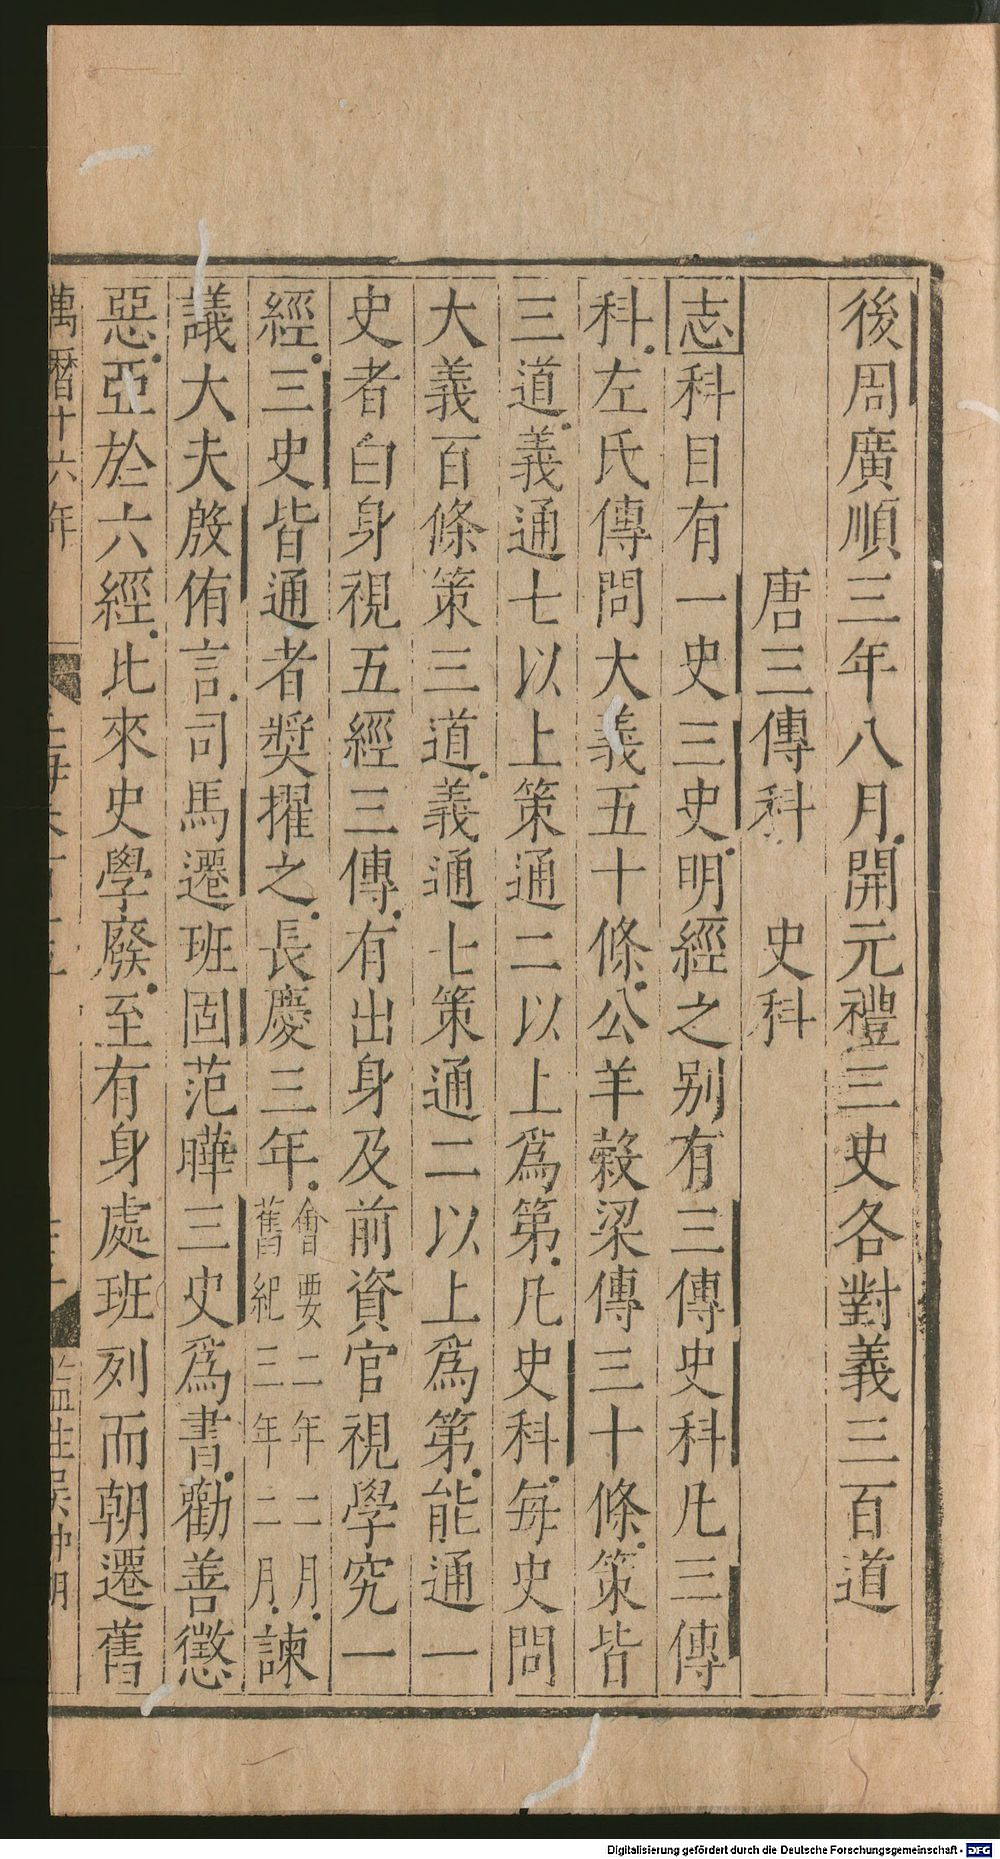 後周廣順三年八月開元禮三史各對義三百道
唐三傳科 史科
志科目有一史三史明經之别有三傳史科凡三傳
科左氏傳問大義五十條公羊糓梁傳三十條策皆
三道義通七以上策通二以上爲第凡史科每史問
大義百條策三道義通七策通二以上爲第能通一
史者白身視五經三傳有出身及前資官視學究一
經三史皆通者奬擢之長慶三年會要二年二月舊紀三年二月諫
議大夫殷侑言司馬遷班固范曄三史爲書勸善懲
惡亞於六經比來史學廢至有身處班列而朝遷舊
萬曆十六年
Digitalisierung gefördert durch die Deutsche Forschungsgemeinschaft - DFG